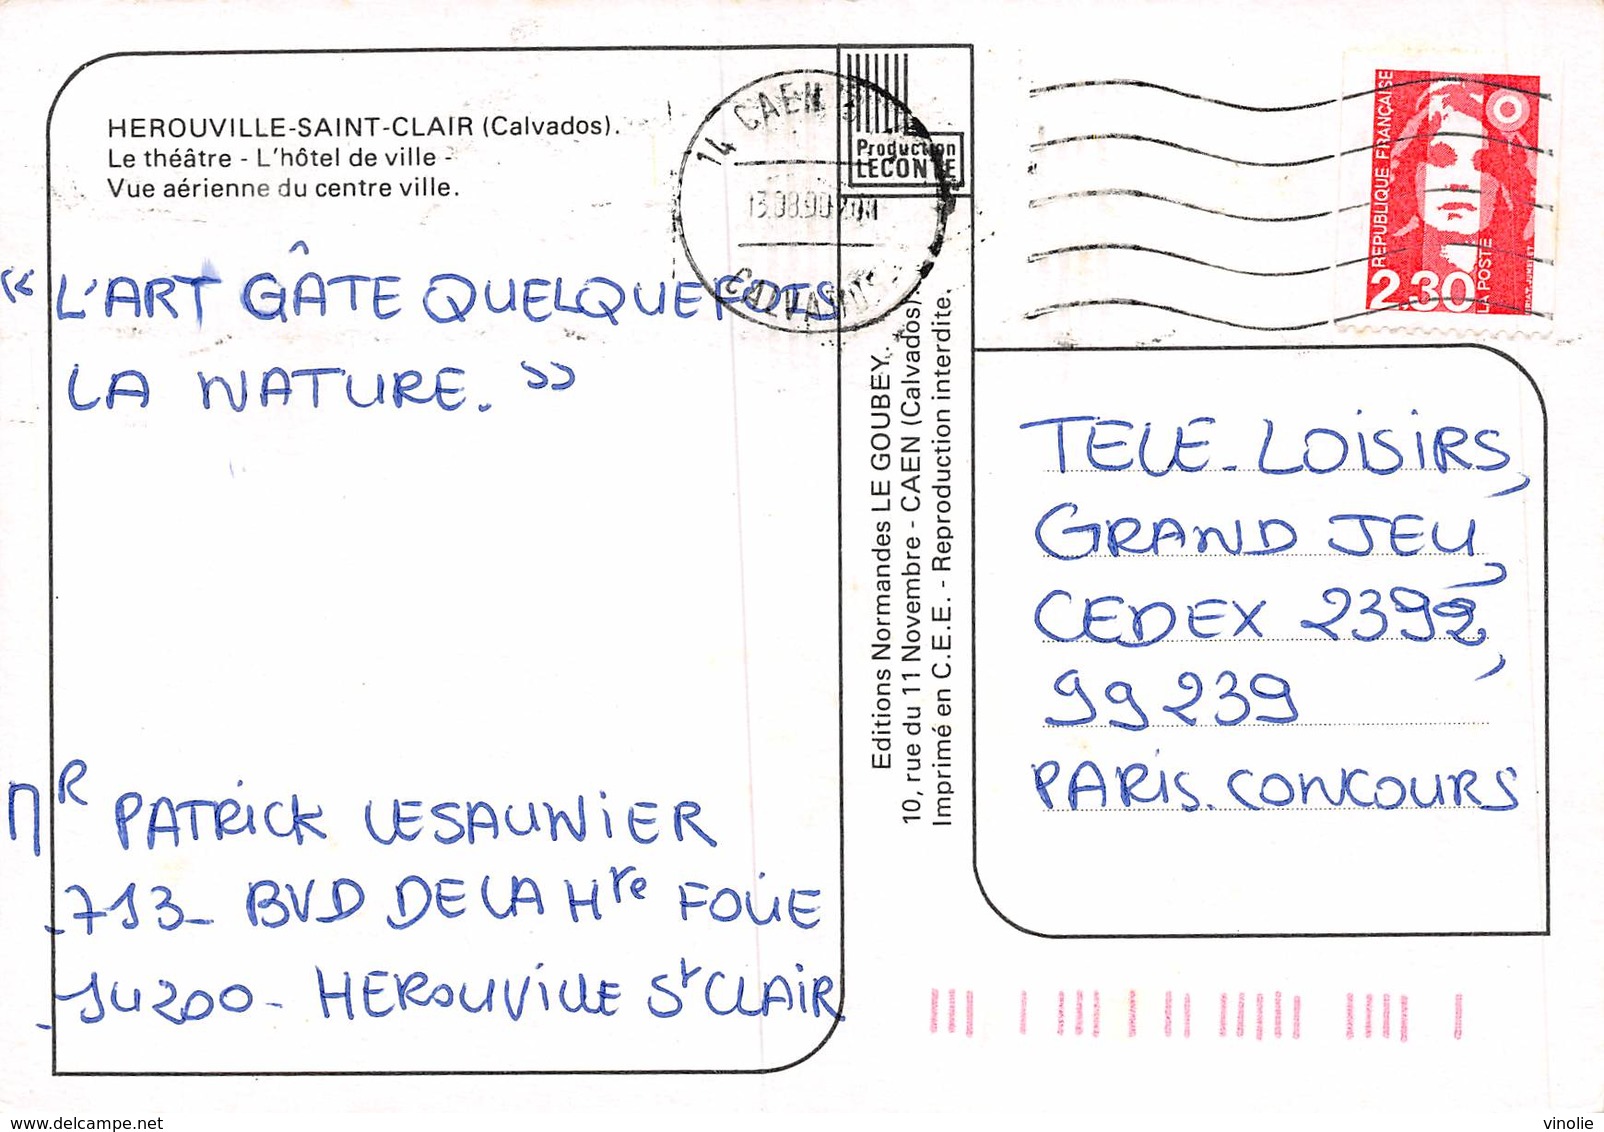 HEROUVILLE-SAINT-CLAIR (Calvados).
Le théâtre - L'hôtel de ville -
Vue aérienne du centre ville.
« L'ART GÂTE QUELQUEFOIS
LA NATURE. »
Mr PATRICK LESAUNIER
713 - BVD DE LA Hre FOLIE
14200 - HEROUVILLE St CLAIR
14 CAEN
13.08.90
CALVADOS
Production
LECONTE
Editions Normandes LE GOUBEY.
10, rue du 11 Novembre - CAEN (Calvados).
Imprimé en C.E.E. - Reproduction interdite.
REPUBLIQUE FRANÇAISE
2.30
LA POSTE
TELE-LOISIRS,
GRAND JEU,
CEDEX 2392,
99239
PARIS. CONCOURS
vinolie
delcampe.net